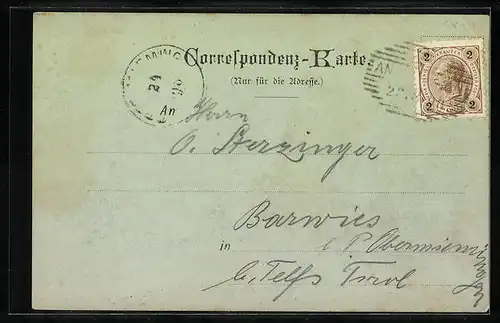 Correspondenz-Karte.
(Nur für die Adresse.)
MING
24
98
An
2 2
2 2
Herrn
O. Sterzinger
Barwies
in P. Obermieming
b. Telfs Tirol